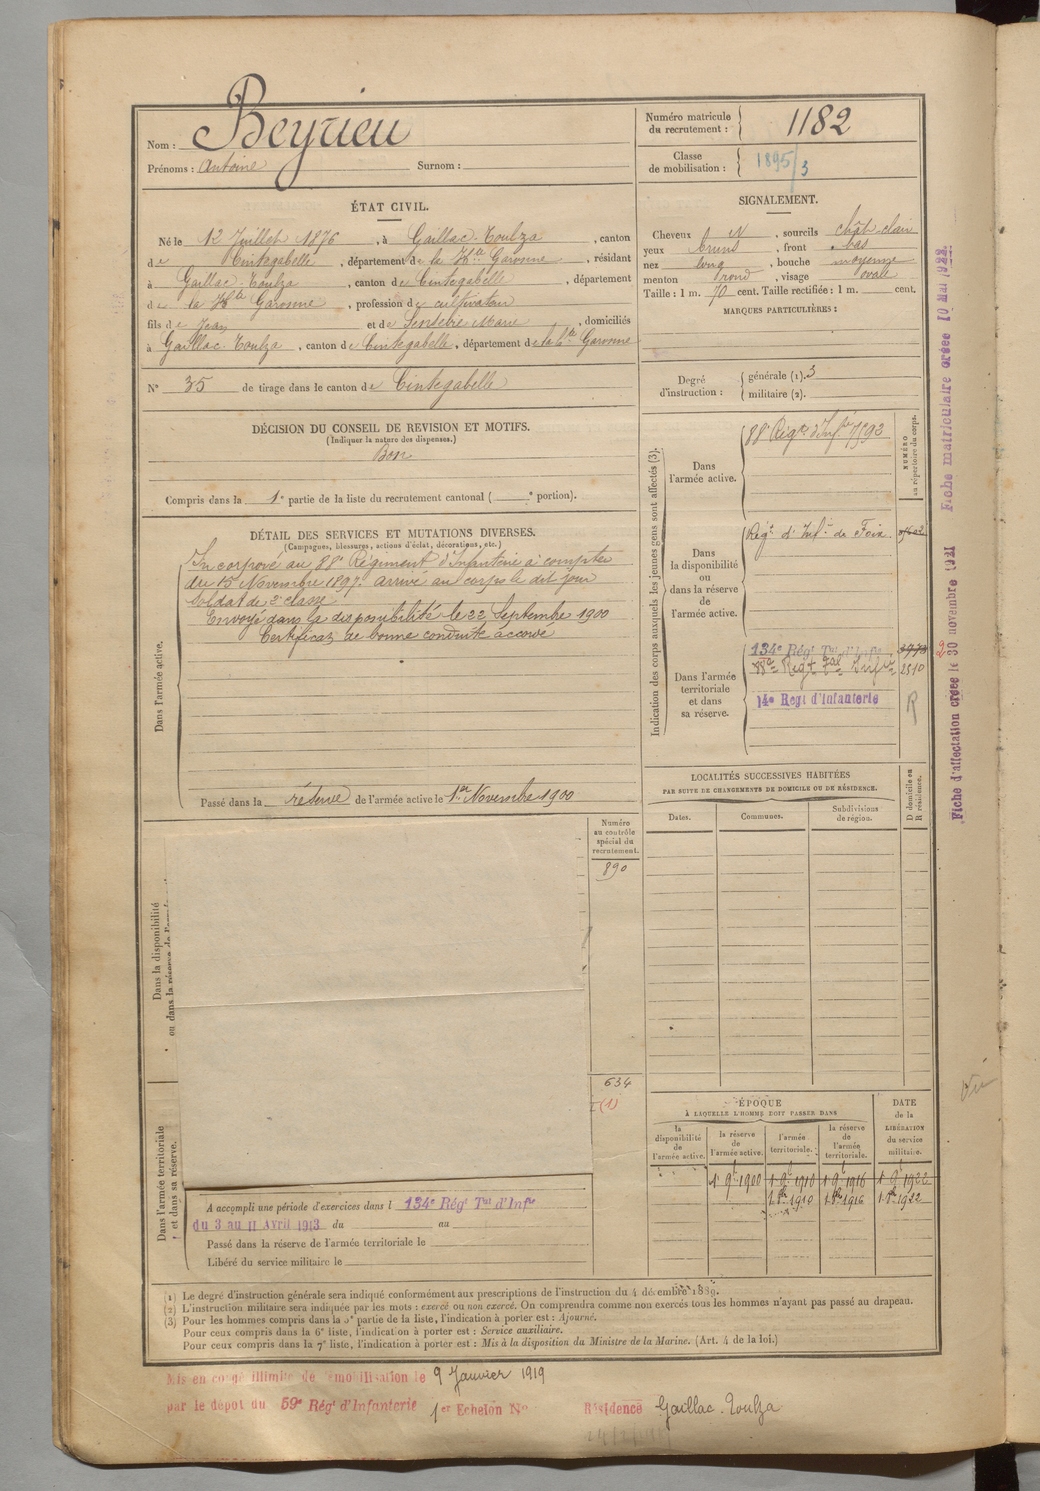 Nom : Beyrieu
Prénoms : Antoine Surnom :
Numéro matricule du recrutement : 1182
Classe de mobilisation : 1895/3
ÉTAT CIVIL.
Né le 12 Juillet 1876, à Gaillac-Toulza, canton
de Cintegabelle, département de la Hte Garonne, résidant
à Gaillac-Toulza, canton de Cintegabelle, département
de la Hte Garonne, profession de cultivateur
fils de Jean et de Marie, domiciliés
à Gaillac-Toulza, canton de Cintegabelle, département de la Hte Garonne
N° 35 de tirage dans le canton de Cintegabelle
SIGNALEMENT.
Cheveux N, sourcils chât clair
yeux bruns, front bas
nez long, bouche moyenne
menton rond, visage ovale
Taille : 1 m. 70 cent. Taille rectifiée : 1 m. cent.
MARQUES PARTICULIÈRES :
Degré d'instruction : générale (1). 3
militaire (2).
DÉCISION DU CONSEIL DE REVISION ET MOTIFS.
(Indiquer la nature des dispenses.)
Bon
Compris dans la 1e partie de la liste du recrutement cantonal ( e portion).
DÉTAIL DES SERVICES ET MUTATIONS DIVERSES.
(Campagnes, blessures, actions d'éclat, décorations, etc.)
Dans l'armée active.
Incorporé au 88e Régiment d'Infanterie à compter
du 15 Novembre 1897. arrivé au corps le dit jour
Soldat de 2e classe
Envoyé dans la disponibilité le 22 Septembre 1900
Certificat de bonne conduite accordé
Passé dans la réserve de l'armée active le 1er Novembre 1900
Indication des corps auxquels les jeunes gens sont affectés (3).
NUMÉRO au répertoire du corps.
Dans l'armée active.
88e Régt d'Infie
Dans la disponibilité ou dans la réserve de l'armée active.
Régt d'Infie de Foix.
Dans l'armée territoriale et dans sa réserve.
134e Régt Tal d'Infie
Regt Tal Infie 2810
14e Regt d'Infanterie R
LOCALITÉS SUCCESSIVES HABITÉES
PAR SUITE DE CHANGEMENTS DE DOMICILE OU DE RÉSIDENCE.
Dates. Communes. Subdivisions de région. D domicile ou R résidence.
Numéro au contrôle spécial du recrutement.
890
634
(1)
Dans la disponibilité
ou dans la réserve de l'armée
Dans l'armée territoriale et dans sa réserve.
ÉPOQUE
À LAQUELLE L'HOMME DOIT PASSER DANS
la disponibilité de l'armée active.
la réserve de l'armée active.
l'armée territoriale.
la réserve de l'armée territoriale.
DATE de la LIBÉRATION du service militaire.
1 9bre 1900 1 9bre 1910 1 9bre 1916 1 9bre 1922
1910 1916 1922
A accompli une période d'exercices dans l 134e Régt Tal d'Infie
du 3 au 11 Avril 1913 du au
Passé dans la réserve de l'armée territoriale le
Libéré du service militaire le
(1) Le degré d'instruction générale sera indiqué conformément aux prescriptions de l'instruction du 4 décembre 1889.
(2) L'instruction militaire sera indiquée par les mots : exercé ou non exercé. On comprendra comme non exercés tous les hommes n'ayant pas passé au drapeau.
(3) Pour les hommes compris dans la 5e partie de la liste, l'indication à porter est : Ajourné.
Pour ceux compris dans la 6e liste, l'indication à porter est : Service auxiliaire.
Pour ceux compris dans la 7e liste, l'indication à porter est : Mis à la disposition du Ministre de la Marine. (Art. 4 de la loi.)
Mis en congé illimité de démobilisation le 9 Janvier 1919
par le dépôt du 59e Régt d'Infanterie 1er Echelon N° Résidence Gaillac-Toulza
Fiche d'affectation créée le 30 novembre 1921
Fiche matriculaire créée 10 Mai 1922
Vu